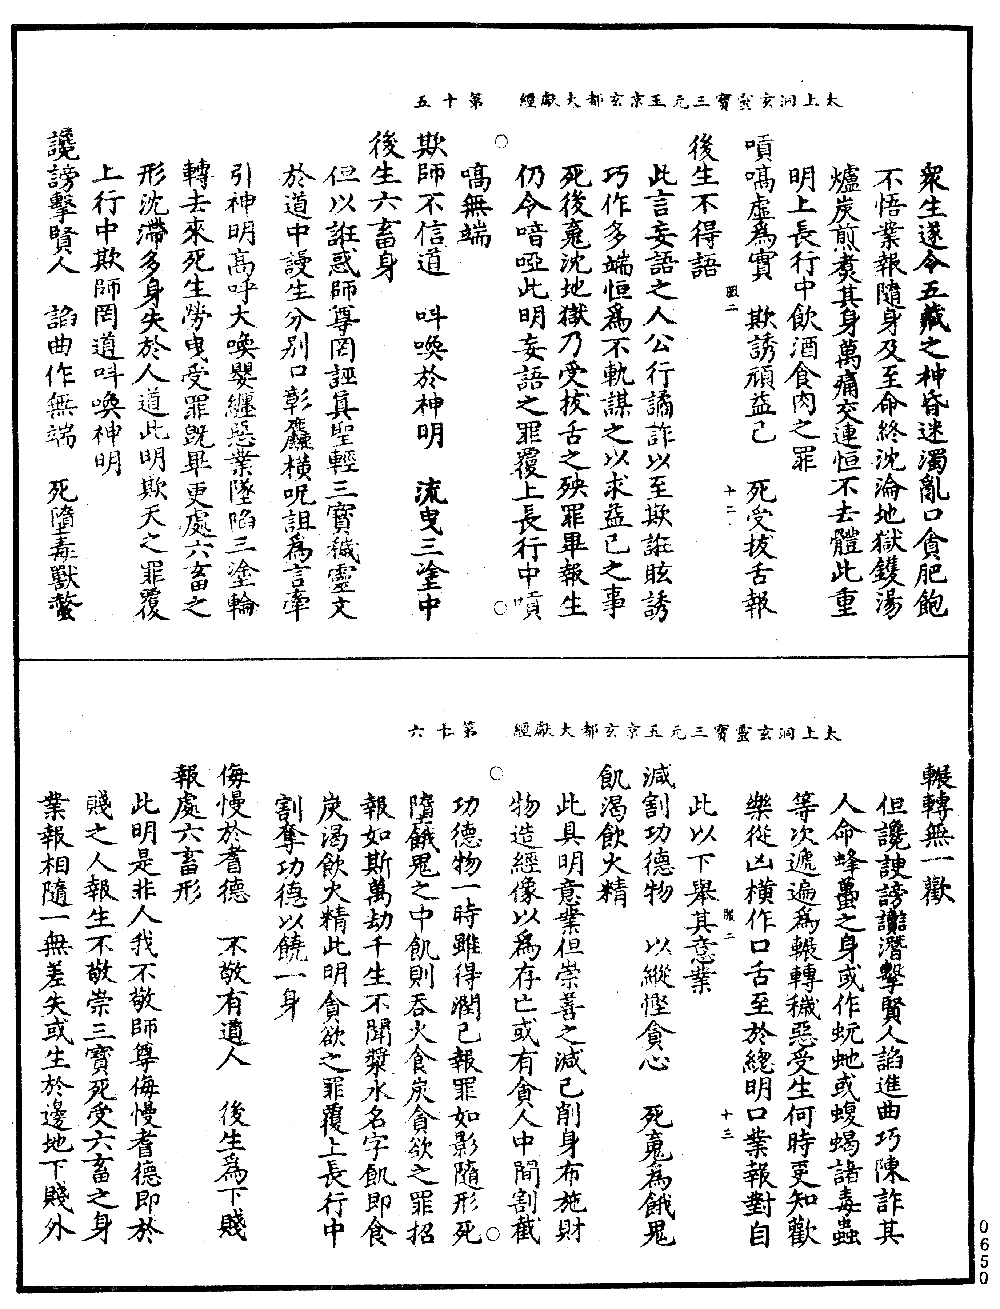 太上洞玄靈寶三元玉京玄都大獻經　第十五
衆生遂令五藏之神昏迷濁亂口貪肥飽
不悟業報隨身及至命終沈淪地獄鑊湯
爐炭煎煑其身萬痛交連恒不去體此重
明上長行中飲酒食肉之罪
嘳㗀虛爲實　欺誘頑益己　死受拔舌報
十二
後生不得語
此言妄語之人公行譎詐以至欺誑眩誘
巧作多端恒爲不軌謀之以求益己之事
死後䰟沈地獄乃受拔舌之殃罪畢報生
仍令喑啞此明妄語之罪覆上長行中嘳
㗀無端
欺師不信道　呌喚於神明　流曳三塗中
後生六畜身
但以誑惑師尊罔誣真聖輕三寶穢靈文
於道中謾生分別口彰麤橫呪詛爲言牽
引神明高呼大喚嬰纏惡業墜陷三塗輪
轉去來死生勞曳受罪旣畢更處六畜之
形沈滯多身失於人道此明欺天之罪覆
上行中欺師罔道呌喚神明
讒謗擊賢人　諂曲作無端　死墮毒獸螫
太上洞玄靈寶三元玉京玄都大獻經　第十六
輾轉無一歡
但讒諛謗讟潛擊賢人諂進曲巧陳詐其
人命蜂蠆之身或作蚖虵或蝮蝎諸毒蟲
等次遞遍爲輾轉穢惡受生何時更知歡
樂從凶橫作口舌至於緫明口業報對自
十三
此以下舉其意業
減割功德物　以縱慳貪心　死䰟爲餓鬼
飢渴飲火精
此具明意業但崇善之減己削身布施財
物造經像以爲存亡或有貪人中間割截
功德物一時雖得潤己報罪如影隨形死
墮餓鬼之中飢則吞火食炭貪欲之罪招
報如斯萬劫千生不聞漿水名字飢即食
炭渴飲火精此明貪欲之罪覆上長行中
割奪功德以饒一身
侮慢於耆德　不敬有道人　後生爲下賤
報處六畜形
此明是非人我不敬師尊侮慢耆德即於
賤之人報生不敬崇三寶死受六畜之身
業報相隨一無差失或生於邊地下賤外
0650